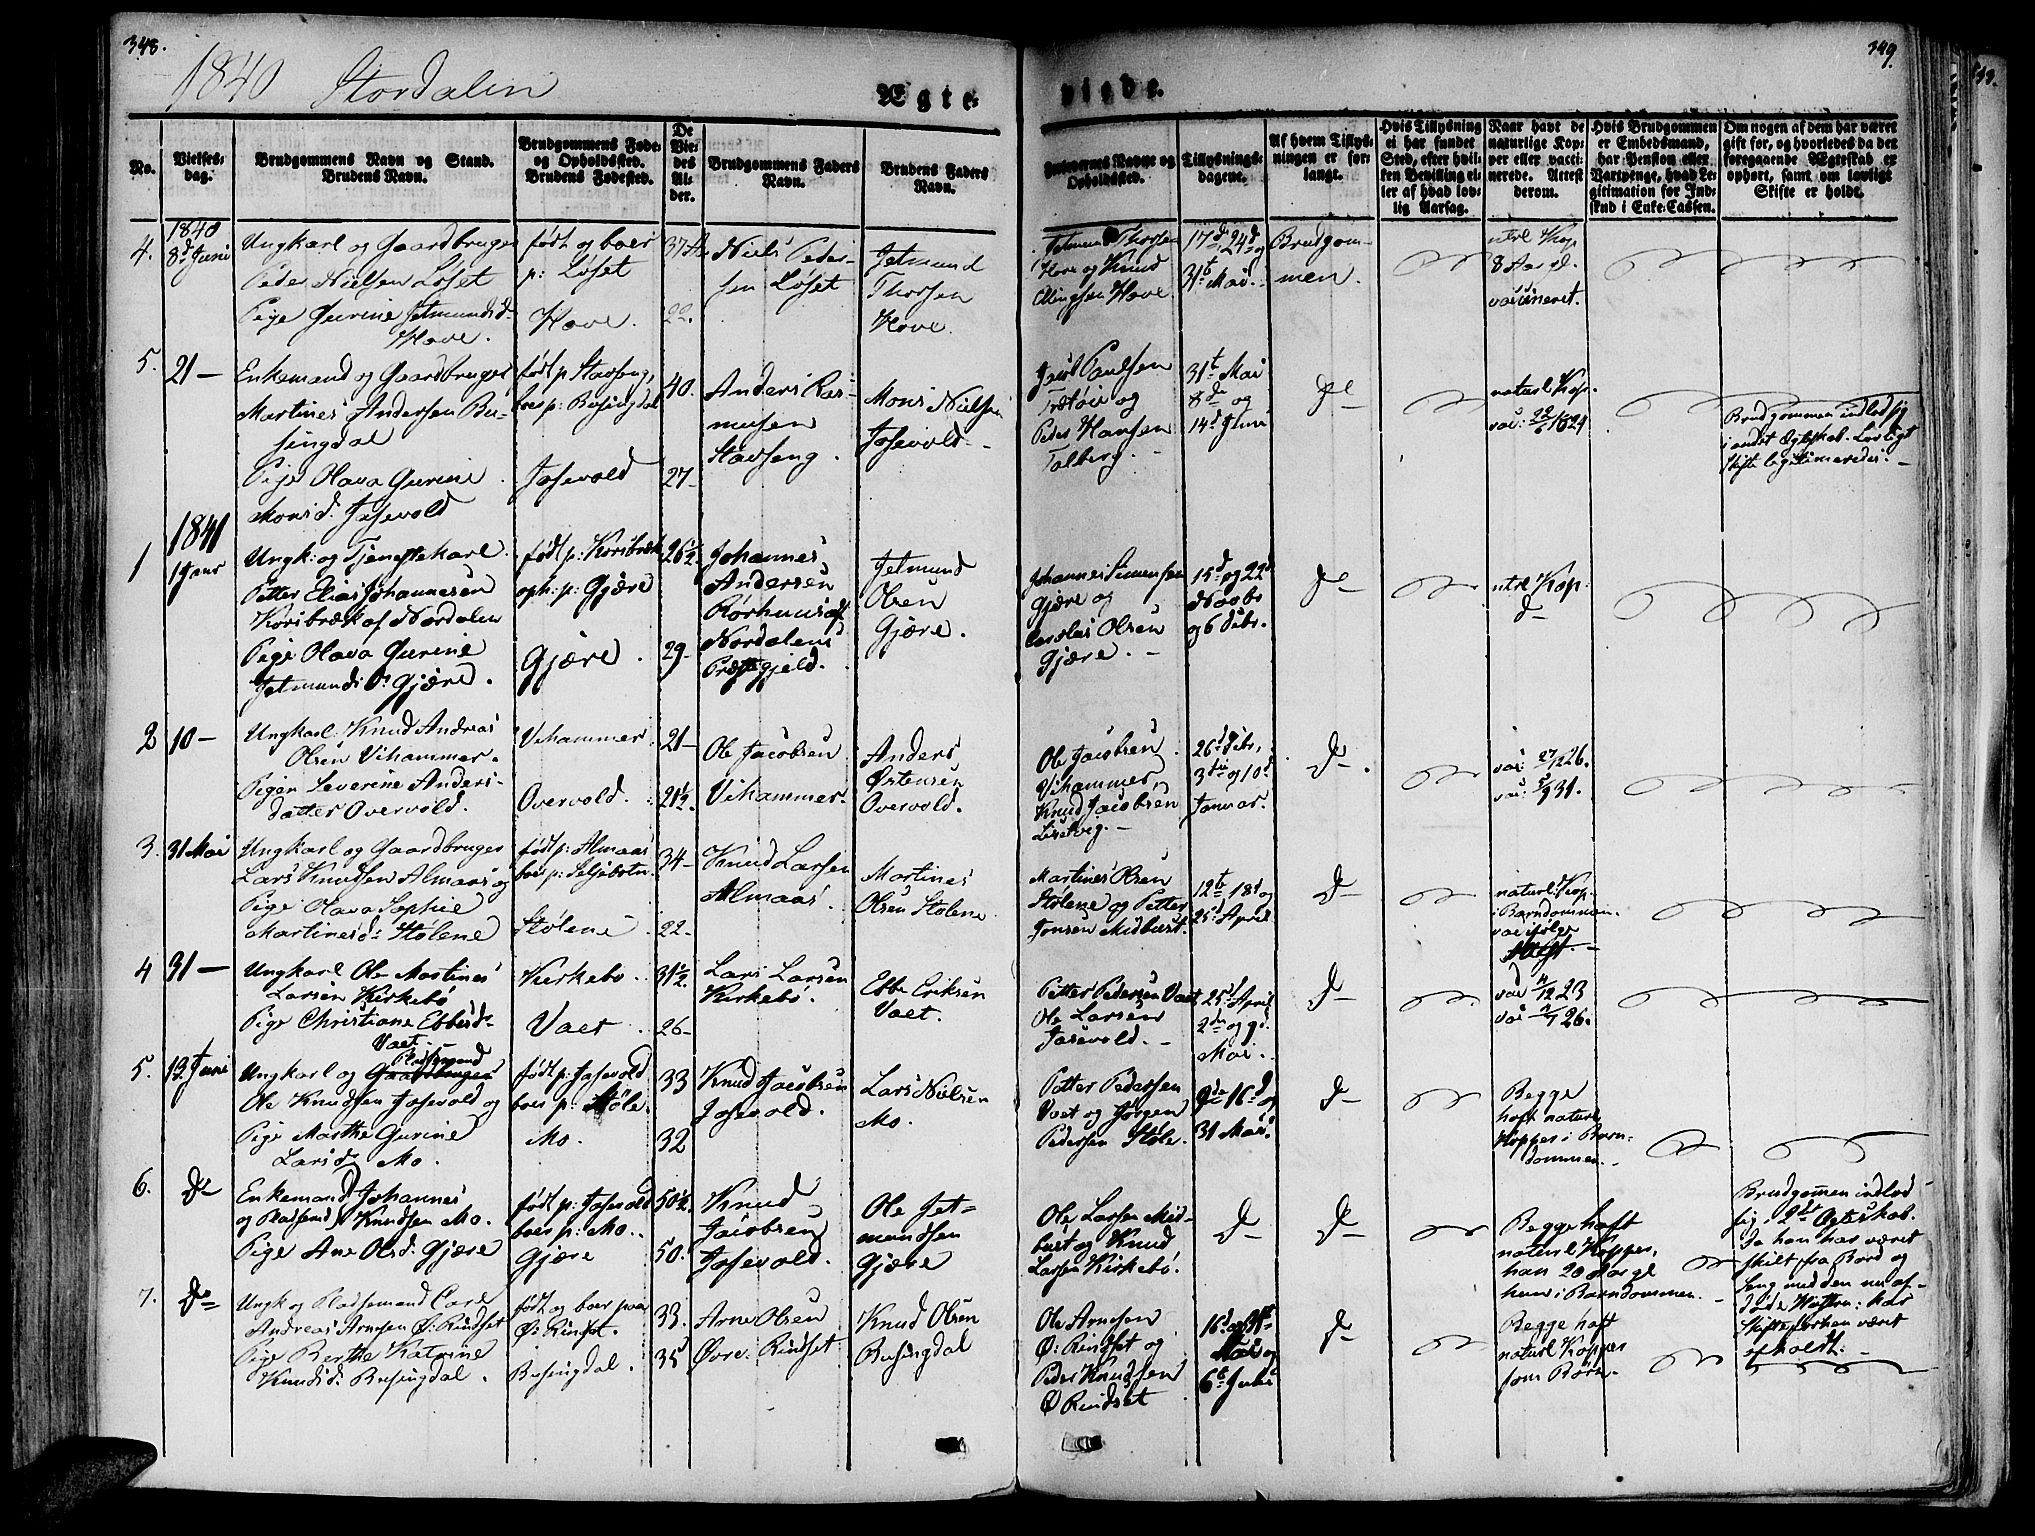 348.
349.
1840 Stordalen
Ægte-
viede.
No.
Vielses-
dag.
Brudgommens Navn og Stand.
Brudens Navn.
Brudgommens Føde-
og Opholdssted.
Brudens Fødested.
De
Vie-
des
Al-
der.
Brudgommens Faders
Navn.
Brudens Faders
Navn.
Forlovernes Navne og
Opholdssted.
Tillysnings-
dagene.
Af hvem Tillys-
ningen er for-
langt.
Hvis Tillysning
ei har fundet
Sted, efter hvil-
ken Bevilling el-
ler af hvad lov-
lig Aarsag.
Naar havt de
naturlige Kop-
per eller vacci-
nerede. Attest
derom.
Hvis Brudgommen
er Embedsmand,
har Pension eller
Vartpenge, hvad Le-
gitimation for Ind-
skud i Enke-Cassen.
Om nogen af dem har været
gift før, og hvorledes da det
foregaaende Ægteskab er
ophørt, samt om lovligt
Skifte er holdt.
4.
1840
8d Juni
Ungkarl og Gaardbruger
Peder Nielsen Løset
Pige Gurine Jetmundsd-
Hove.
født og boer
p: Løset
Hove.
37 Ar
22.
Niels Peder-
sen Løset
Jetmund
Thorsen
Hove.
Jetmund Thorsen
Hove og Knud
Ellingsen Hove
17d 24d og
31te Mai.
Brudgom-
men.
ntrl Kop
8 Aar gl.
vaccineret.
5.
21 —
Enkemand og Gaardbruger
Martines Andersen Bu-
singdal
Pige Olava Gurine
Monsd. Jøsevold
født p: Stavseng,
boer p: Busingdal
Jøsevold
40.
27-
Anders Ras-
musen
Stavseng.
Mons Nielsen
Jøsevold
Jacob Paulsen
og
Peder Hansen
Talberg. -
31te Mai
8de og
14d Juni
Do
naturl Kop.
vac: 22/6 1824
Brudgommen indlod sig
i andet Ægteskab. Lovligt
Skifte legitimeredes. -
1841
1
1 Janr
Ungk: og Tjenestekarl
Petter Elias Johannesen
Korsbræk af Nordalen
Pige Olava Gurine
Jetmundsd. Gjære.
født p: Korsbræk
oph: p: Gjære
Gjære.
26½
29-
Johannes
Andersen
Rørhuus af
Nordalens
Præstegjeld.
Jetmund
Olsen
Gjære.
Johannes Simensen
Gjære og
Olsen
Gjære. -
15d og 22d
Novbr
og 6 Debr.
Do
ntrl Kop.
d-
2
10 —
Ungkarl Knud Andreas
Olsen Vihammer.
Pigen Severine Anders-
datter Overvold.
Vihammer
Overvold.
21-
21½
Ole Jacobsen
Vihammer.
Anders
Østensen
Overvold.
Ole Jacobsen
Vihammer,
Knud Jacobsen
26d Debr,
3die og 10d
Januar.
Do
vac: 27/12 26.
vac: 5/9 31.
3.
31 Mai
Ungkarl og Gaardbruger
Lars Knudsen Almaas og
Pige Olava Sophie
Martinesd: Stølene
født p: Almaas
boer p: Seljebotn
Stølene
34-
22-
Knud Larsen
Almaas.
Martines
Olsen Stølene
Martines Olsen
Stølene og Petter
Jonsen Midbust.
12te 18d og
25d April
Do
naturl: Kop.
i Barndommen.
vac ifølge
Attest. -
4
31 —
Ungkarl Ole Martines
Larsen Kirkebø
Pige Christiane Ebbesd-
Vaet
Kirkebø.
Vaet.
31½
26-
Lars Larsen
Kirkebø.
Ebbe Eriksen
Vaet.
Petter Pedersen Vaet
Ole Larsen
Jøsevold. -
25d April
2den og 9d
Mai.
Do
vac 11/12 23
vac 26.
5.
13 Juni
Pladsmand
Ungkarl og Gaardbruger
Ole Knudsen Jøsevold og
Pige Marthe Gurine
Larsd. Mo.
født p: Jøsevold
boer p: Støle.
Mo.
33
32
Knud Jacobsen
Jøsevold.
Lars Nielsen
Mo.
Petter Pedersen
Vaet og Jørgen
Pedersen Støle.
9de 16d og
31 Mai.
Do
Begge
haft naturl
Kopper i Barn-
dommen. -
6.
Do
Enkemand Johannes
og Pladsmd Knudsen Mo.
Pige Ane Olsd: Gjære
født p: Jøsevold
boer p: Mo.
Gjære
50½
50.
Knud
Jacobsen
Jøsevold.
Ole Jet-
mundsen
Gjære
Ole Larsen Mid-
bust og Knud
Larsen Kirkebø.
Do
Do
Begge haft
naturl Kopper,
han 20 Aar gl
hun i Barndommen.
Brudgommen indlod
sig i 2det Ægteskab.
Da han har været
skilt fra Bord og
Seng med den nu af-
døde Hustru: har
Skifte ikke været
afholdt. -
7.
Do
Ungk og Pladsemand Carl
Andreas Arnesen Ø: Rindset
Pige Berthe Katrine
Knudsd. Busingdal.
født og boer paa
Ø: Rinset.
Busingdal.
33.
35
Arne Olsen
Øvre: Rindset
Knud Olsen
Busingdal
Ole Arnesen
Ø: Rindset og
Peder Knudsen
Ø Rindset
16d og 31te
Mai og
6te Juni
Do
Begge haft
naturl Kopper
som Børn.